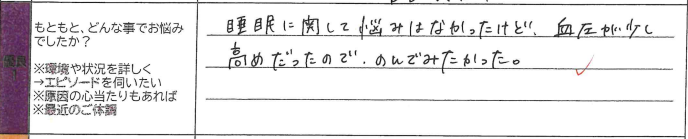 もともと、どんな事でお悩み
でしたか？
※環境や状況を詳しく
→エピソードを伺いたい
※原因の心当たりもあれば
※最近のご体調
睡眠に関して悩みはなかったけど、血圧が少し
高めだったので、のんでみたかった。